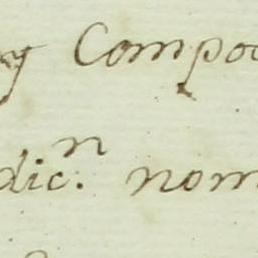 y Compo
dic.ⁿ nom